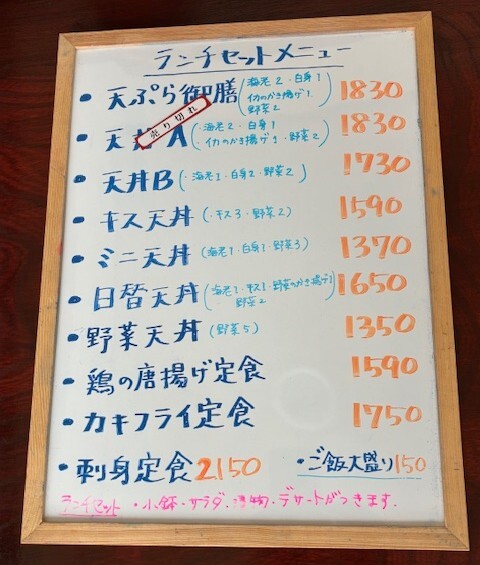 ランチセットメニュー
・天ぷら御膳(海老2・白身1 イカのかき揚げ1 野菜2) 1830
・天丼A(・海老2・白身1 ・イカのかき揚げ1・野菜2) 1830
売り切れ
・天丼B(・海老1・白身2・野菜2) 1730
・キス天丼(・キス3・野菜2) 1590
・ミニ天丼(海老1・白身1・野菜3) 1370
・日替天丼(海老1・キス1・野菜のかき揚げ1 野菜2) 1650
・野菜天丼(野菜5) 1350
・鶏の唐揚げ定食 1590
・カキフライ定食 1750
・刺身定食2150 ・ご飯大盛り150
ランチセット ・小鉢・サラダ・漬物・デザートがつきます。